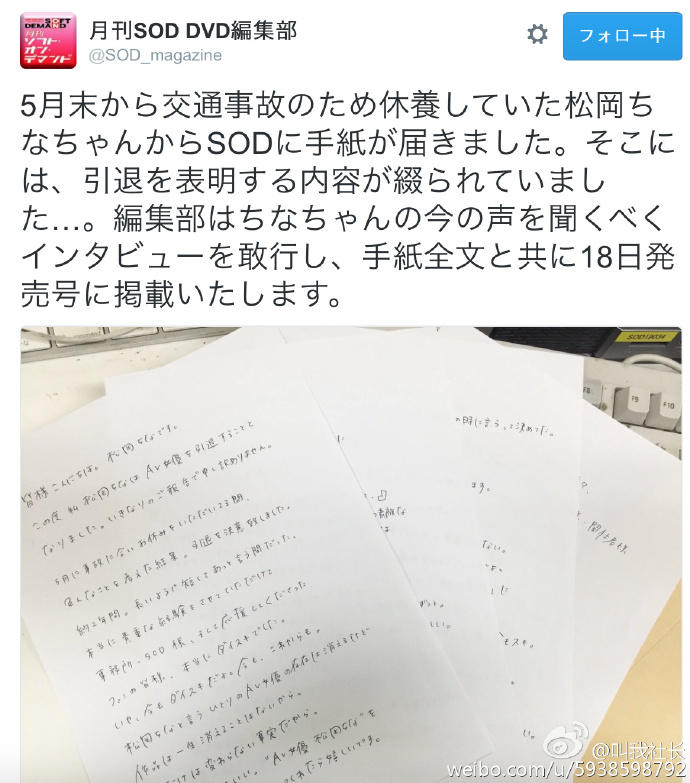 SOFT
DEMAND
月刊
ソフト・
オン・
デマンド
月刊SOD DVD編集部
@SOD_magazine
フォロー中
5月末から交通事故のため休養していた松岡ち
なちゃんからSODに手紙が届きました。そこに
は、引退を表明する内容が綴られていまし
た…。編集部はちなちゃんの今の声を聞くべく
インタビューを敢行し、手紙全文と共に18日発
売号に掲載いたします。
皆様こんにちは。松岡ちなです。
この度 私 松岡ちなは AV女優を引退することと
なりました。いきなりのご報告で申し訳ありません。
5月に事故に合い お休みをいただいてる間、
色んなことを考えた結果、引退を決意致しました。
約2年間。長いようで短くてあっと言う間だった。
本当に貴重な経験をさせていただけて
事務所・SOD様、そして応援してくださった
ファンの皆様、本当にダイスキでした。
いや、今もダイスキだよ。今も、これからも。
松岡ちなと言うひとりのAV女優の存在は消えるけど
作品は一生消えることはないから。
は変わらない事実だから。
"AV女優 松岡ちな"を
れたら嬉しいです。
の時に言うって決めてた。
ます。
ない。
モスキ。
関係者様
F9
F10
@叫我社长
weibo.com/u/5938598792